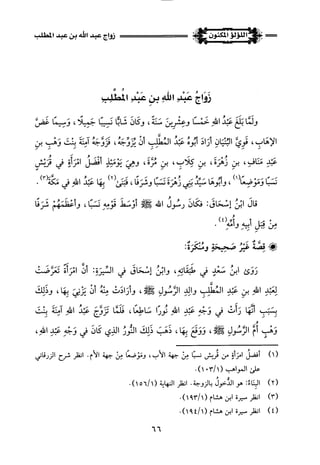 اللؤلؤ المكنون
زواج عبد الله بن عبد المطلب
زَوَاجُ عَبْدِ اللهِ بنِ عَبْدِ المُطَّلِبِ
ولَمَّا بَلَغَ عَبْدُ اللهِ خَمْسًا وعِشْرِينَ سَنَةً، وكَانَ شَابًّا نَسِيبًا جَمِيلًا، وَسِيمًا غَضَّ
الإهَابِ، قَوِيَّ البُنْيَانِ أرَادَ أبُوهُ عَبْدُ المُطَّلِبِ أنْ يُزَوِّجَهُ، فَزَوَّجَهُ آمِنَةَ بِنْتَ وَهْبِ بنِ
عَبْدِ مَنَافٍ، بنِ زُهْرَةَ، بنِ كِلَابٍ، بنِ مُرَّةَ، وهِيَ يَوْمَئِذٍ أفْضَلُ امْرَأةٍ في قُرَيْشٍ
نَسَبًا وَمَوْضِعًا(١)، وأبُوهَا سَيِّدُ بَنِي زُهْرَةَ نَسَبًا وشَرَفًا، فَبَنَى(٢) بِهَا عَبْدُ اللهِ في مَكَّةَ(٣).
قالَ ابْنُ إسْحَاقَ: فكَانَ رسُولُ اللهِ ﷺ أوْسَطَ قَوْمِهِ نَسَبًا، وأعْظَمَهُمْ شَرَفًا
مِنْ قِبَلِ أبِيهِ وأُمِّهِ(٤).
قِصَّةٌ غَيْرُ صَحِيحَةٍ ومُنْكَرَةٌ:
رَوَى ابْنُ سَعْدٍ في طَبَقَاتِهِ، وابْنُ إسْحَاقَ في السِّيرَةِ: أنَّ امْرَأةً تَعَرَّضَتْ
لِعَبْدِ اللهِ بنِ عَبْدِ المُطَّلِبِ والِدِ الرَّسُولِ ﷺ، وأرَادَتْ مِنْهُ أنْ يَزْنِيَ بِهَا، وذَلِكَ
بِسَبَبِ أنَّهَا رَأتْ في وَجْهِ عَبْدِ اللهِ نُورًا سَاطِعًا، فَلَمَّا تَزَوَّجَ عَبْدُ اللهِ آمِنَةَ بِنْتَ
وَهْبٍ أُمَّ الرَّسُولِ ﷺ، وَوَقَعَ بِهَا، ذَهَبَ ذَلِكَ النُّورُ الذِي كَانَ في وَجْهِ عَبْدِ اللهِ،
(١) أفضلُ امرأةٍ من قُريش نسبًا مِنْ جهة الأب، ومَوْضِعًا مِنْ جهة الأم. انظر شرح الزرقاني
على المواهب (١٠٣/١).
(٢) البِنَاءُ: هو الدُّخولُ بالزوجة. انظر النهاية (١٥٦/١).
(٣) انظر سيرة ابن هشام (١٩٣/١).
(٤) انظر سيرة ابن هشام (١٩٤/١).
٦٦